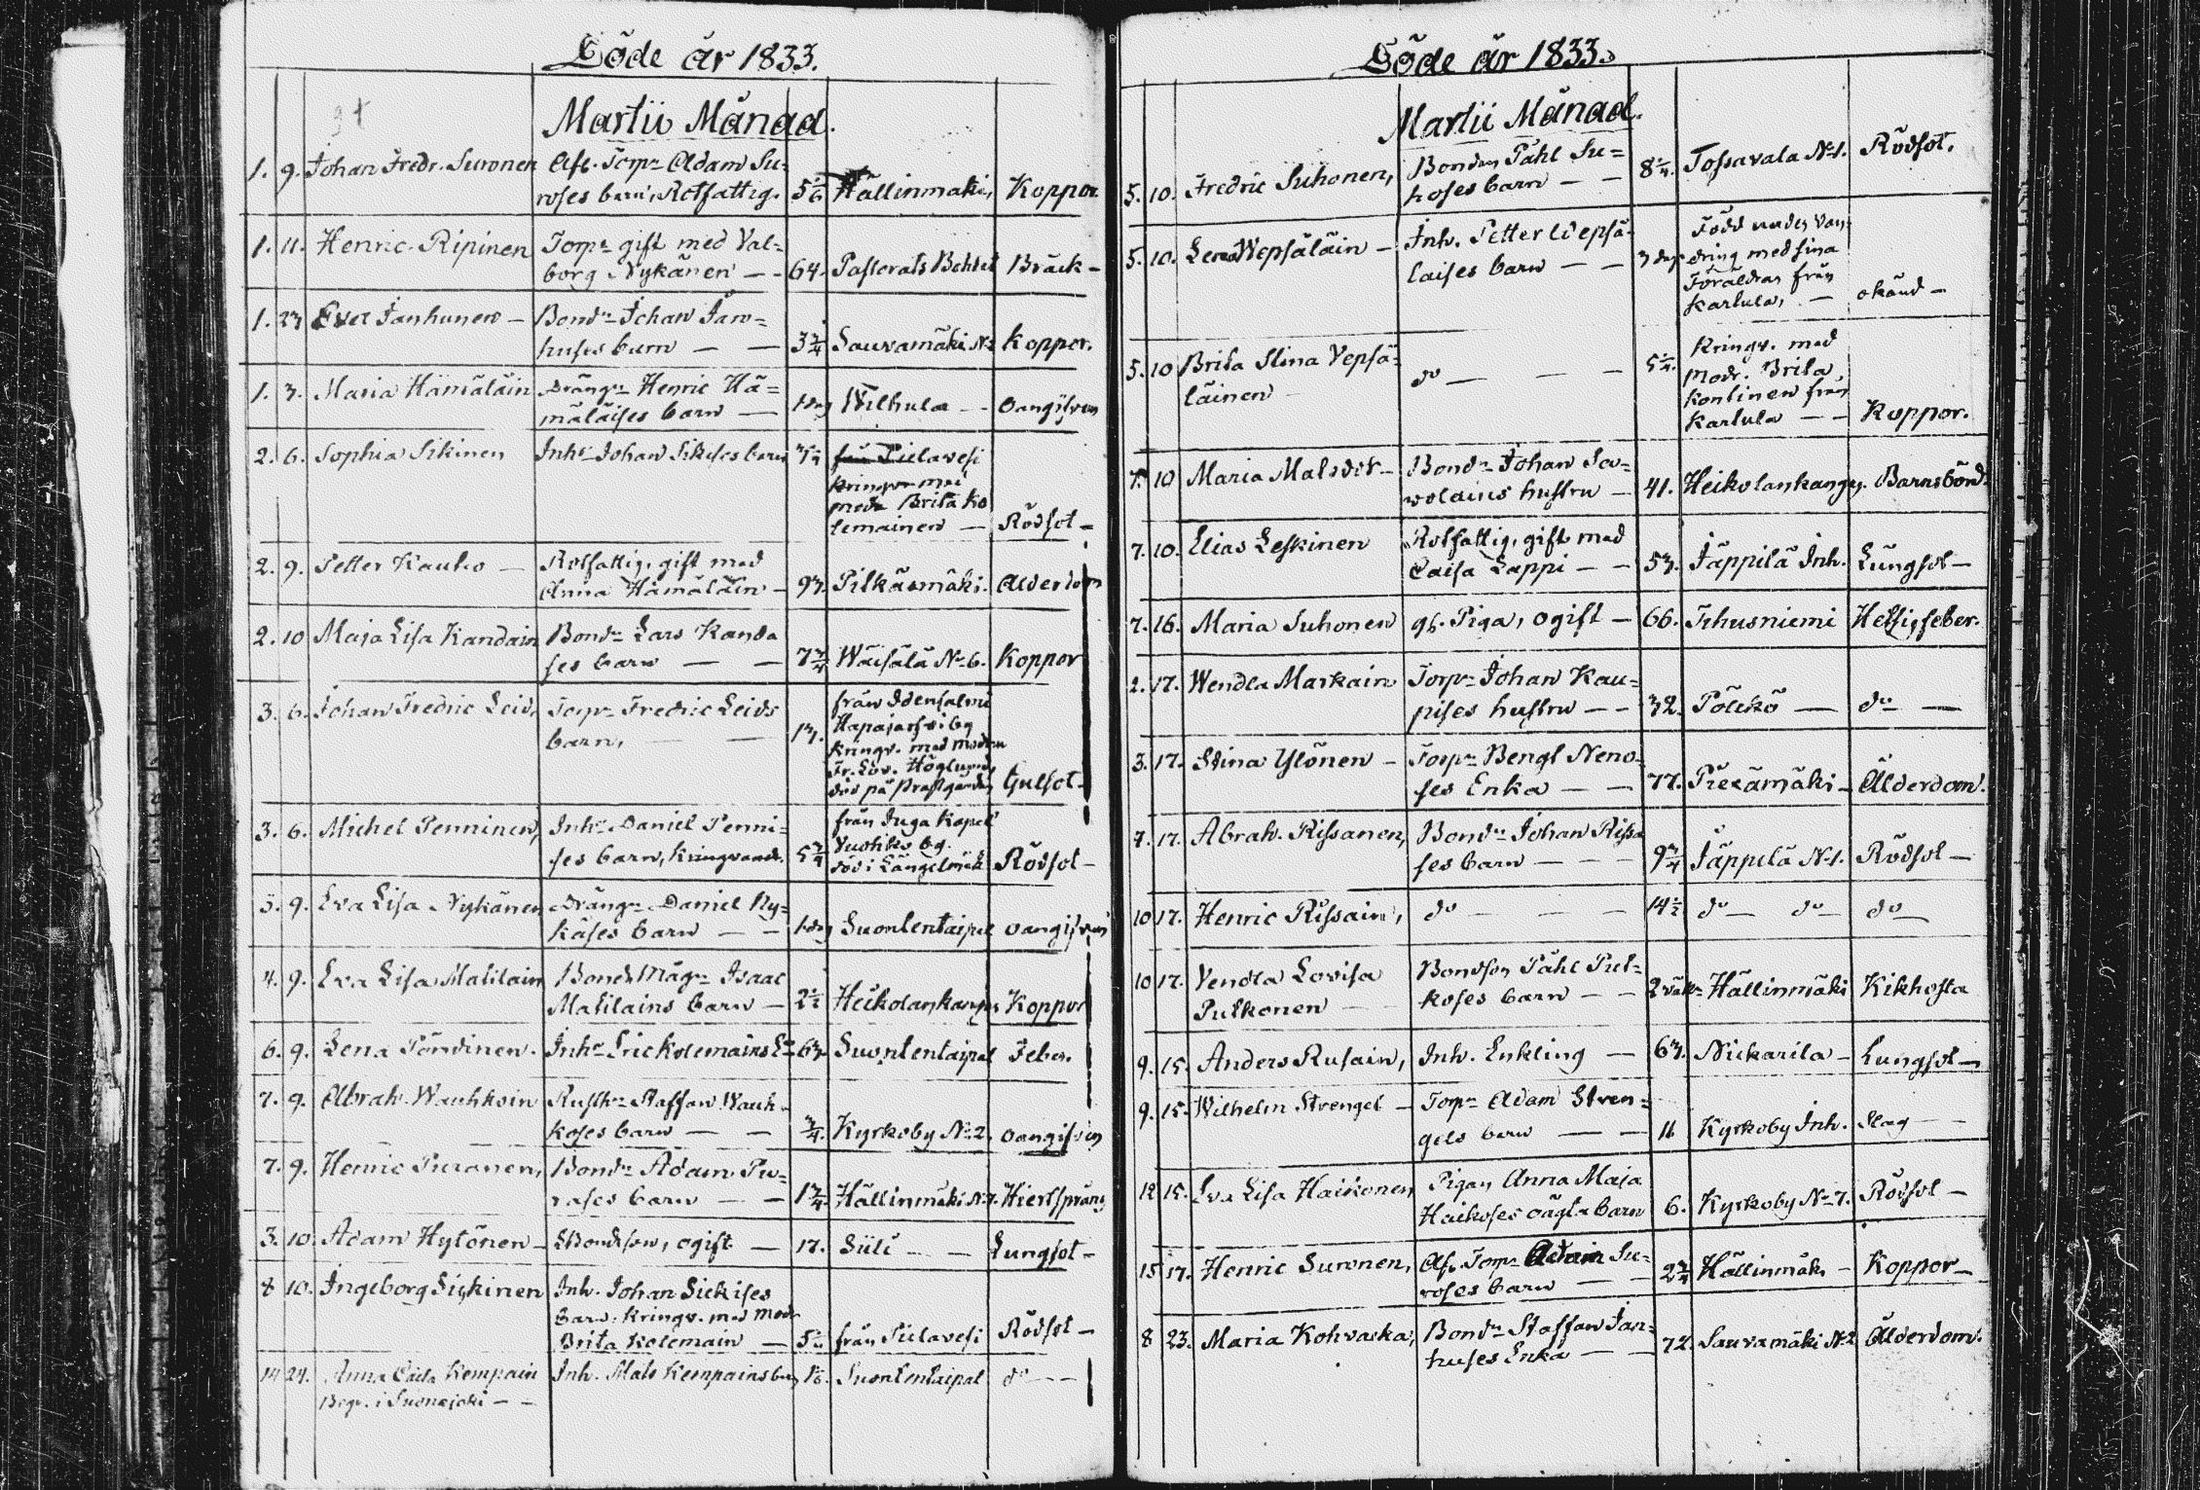 Döde år 1833.
Martii Månad.
1. 9. Johan Fredr. Suronen Afl. Torpr Adam Su=
roses barn, Rotfattig. 5 1/6 Hällinmäki, Koppor.
1. 11. Henric Ripinen Torpr gift med Val=
borg Nykänen — 64. Pastorats Bohlet Bräck —
1. 23 Eva Janhunen — Bondn Johan Jan=
huses barn — — 3 3/4 Sauvamäki No 2 Koppor.
1. 3. Maria Hämäläin Drängn Henric Hä=
mäläises barn — 1 dag Wilhula — oangifven
2. 6. Sophia Sikinen Inhs Johan Sikises barn från Pielavesi
kringv. med
modr Brita Ko
lemainen — Rödsot —
2. 9. Petter Kauko — Rotfattig, gift med
Anna Hämäläin — 93. Pitkäsmäki. Alderdom
2. 10 Maja Lisa Kandain Bondn Lars Kanda
ses barn — — 7 3/4 Wäisälä No 6. Koppor
3. 6. Johan Fredric Leids Torpr Fredric Leids
barn, — — 13. från Idensalmi
Hapajärfvi by
kringv. med modren
Fr. Lov. Höglund,
död på Prästgården Gulsot —
3. 6. Michel Penninen, Inhs Daniel Penni=
ses barn, kringvandr. 5 3/4 från Juga Kapell
Vuohiko by.
död i Längelmäk Rödsot —
3. 9. Eva Lisa Nykänen Drängn Daniel Ny=
käses barn — — 1 dag Suontentaipal oangifven
4. 9. Eva Lisa Matilain Bonds Mågn Isaac
Matilains barn — 2 1/2 Heikolankangas Koppor
6. 9. Lena Pöndinen. Inhs Eric Kolemains E. 63. Suontentaipal Feber.
7. 9. Abrah. Wauhkoin Rusthn Staffan Wauh=
koses barn — — 3/4. Kyrkoby No 2. oangifven
7. 9. Henric Puranen, Bondn Adam Pu=
rases barn — — 1 3/4 Hällinmäki No 7. Hiertspräng
3. 10. Adam Hytönen — Bondeson, ogift — 17. Siili — — Lungsot —
8 10. Ingeborg Sickinen Inh. Johan Sickises
barn, kringv. med Modr
Brita Kolemain — från Pielavesi Rödsot —
14 24. Anna Caisa Kempain Inh. Mats Kempains barn Suontentaipal do — —
Begr. i Suonejoki — —
Döde år 1833.
Martii Månad.
5. 10. Fredric Suhonen, Bonden Påhl Su=
hoses barn — — 8 1/4. Tossavala No 1. Rödsot.
5. 10. Lena Wepsäläin — Inh. Petter Wepsä=
läises barn — — 3 dag Född under van=
dring med sina
Föräldrar från
Karlula, — okänd —
5. 10 Brita Stina Vepsä=
läinen do — — — 5 1/4. Kringv. med
Modr. Brita
Kontinen från
Karlula — — Koppor.
7. 10 Maria Matsdotr — Bondn Johan Sa=
volains hustru — 41. Heikolankangas. Barnsbörd.
7. 10. Elias Leskinen Rotfattig, gift med
Caisa Lappi — — 53. Jäppilä Inh. Lungsot —
7. 16. Maria Suhonen gl. Piga, ogift — 66. Ithusniemi Hettigfeber.
2. 17. Wendla Markain Torpr Johan Kau=
pises hustru — — 32. Pölckö — do —
3. 17. Stina Ylönen — Torpr Bengt Neno=
ses Enka — — 77. Piezämäki — Älderdom.
7. 17. Abrah. Rissanen, Bondn Johan Rissa
ses barn — — — 9 3/4 Jäppilä No 1. Rödsot —
10 17. Henric Rissain, do — — — 14 1/2 do — do — do —
10 17. Vendla Lovisa
Pulkonen — Bondson Påhl Pul=
koses barn — — 2 väkr Hällinmäki Kikhosta
9. 15. Anders Rusain, Inh. Enkling — 63. Nickarila — Lungsot —
9. 15. Wilhelm Strengel — Torpr Adam Stren=
gels barn — — 11 Kyrkoby Inh. Slag —
12 15. Eva Lisa Haikonen Pigan Anna Maja
Haikoses oägta barn 6. Kyrkoby No 7. Rödsot —
15 17. Henric Suronen, Afl. Torpr Adam Su=
roses barn — — 2 3/4 Hällinmäki — Koppor —
8 23. Maria Kohvacka, Bondn Staffan Jan=
huses Enka — — 72. Sauvamäki No 2 Älderdom.